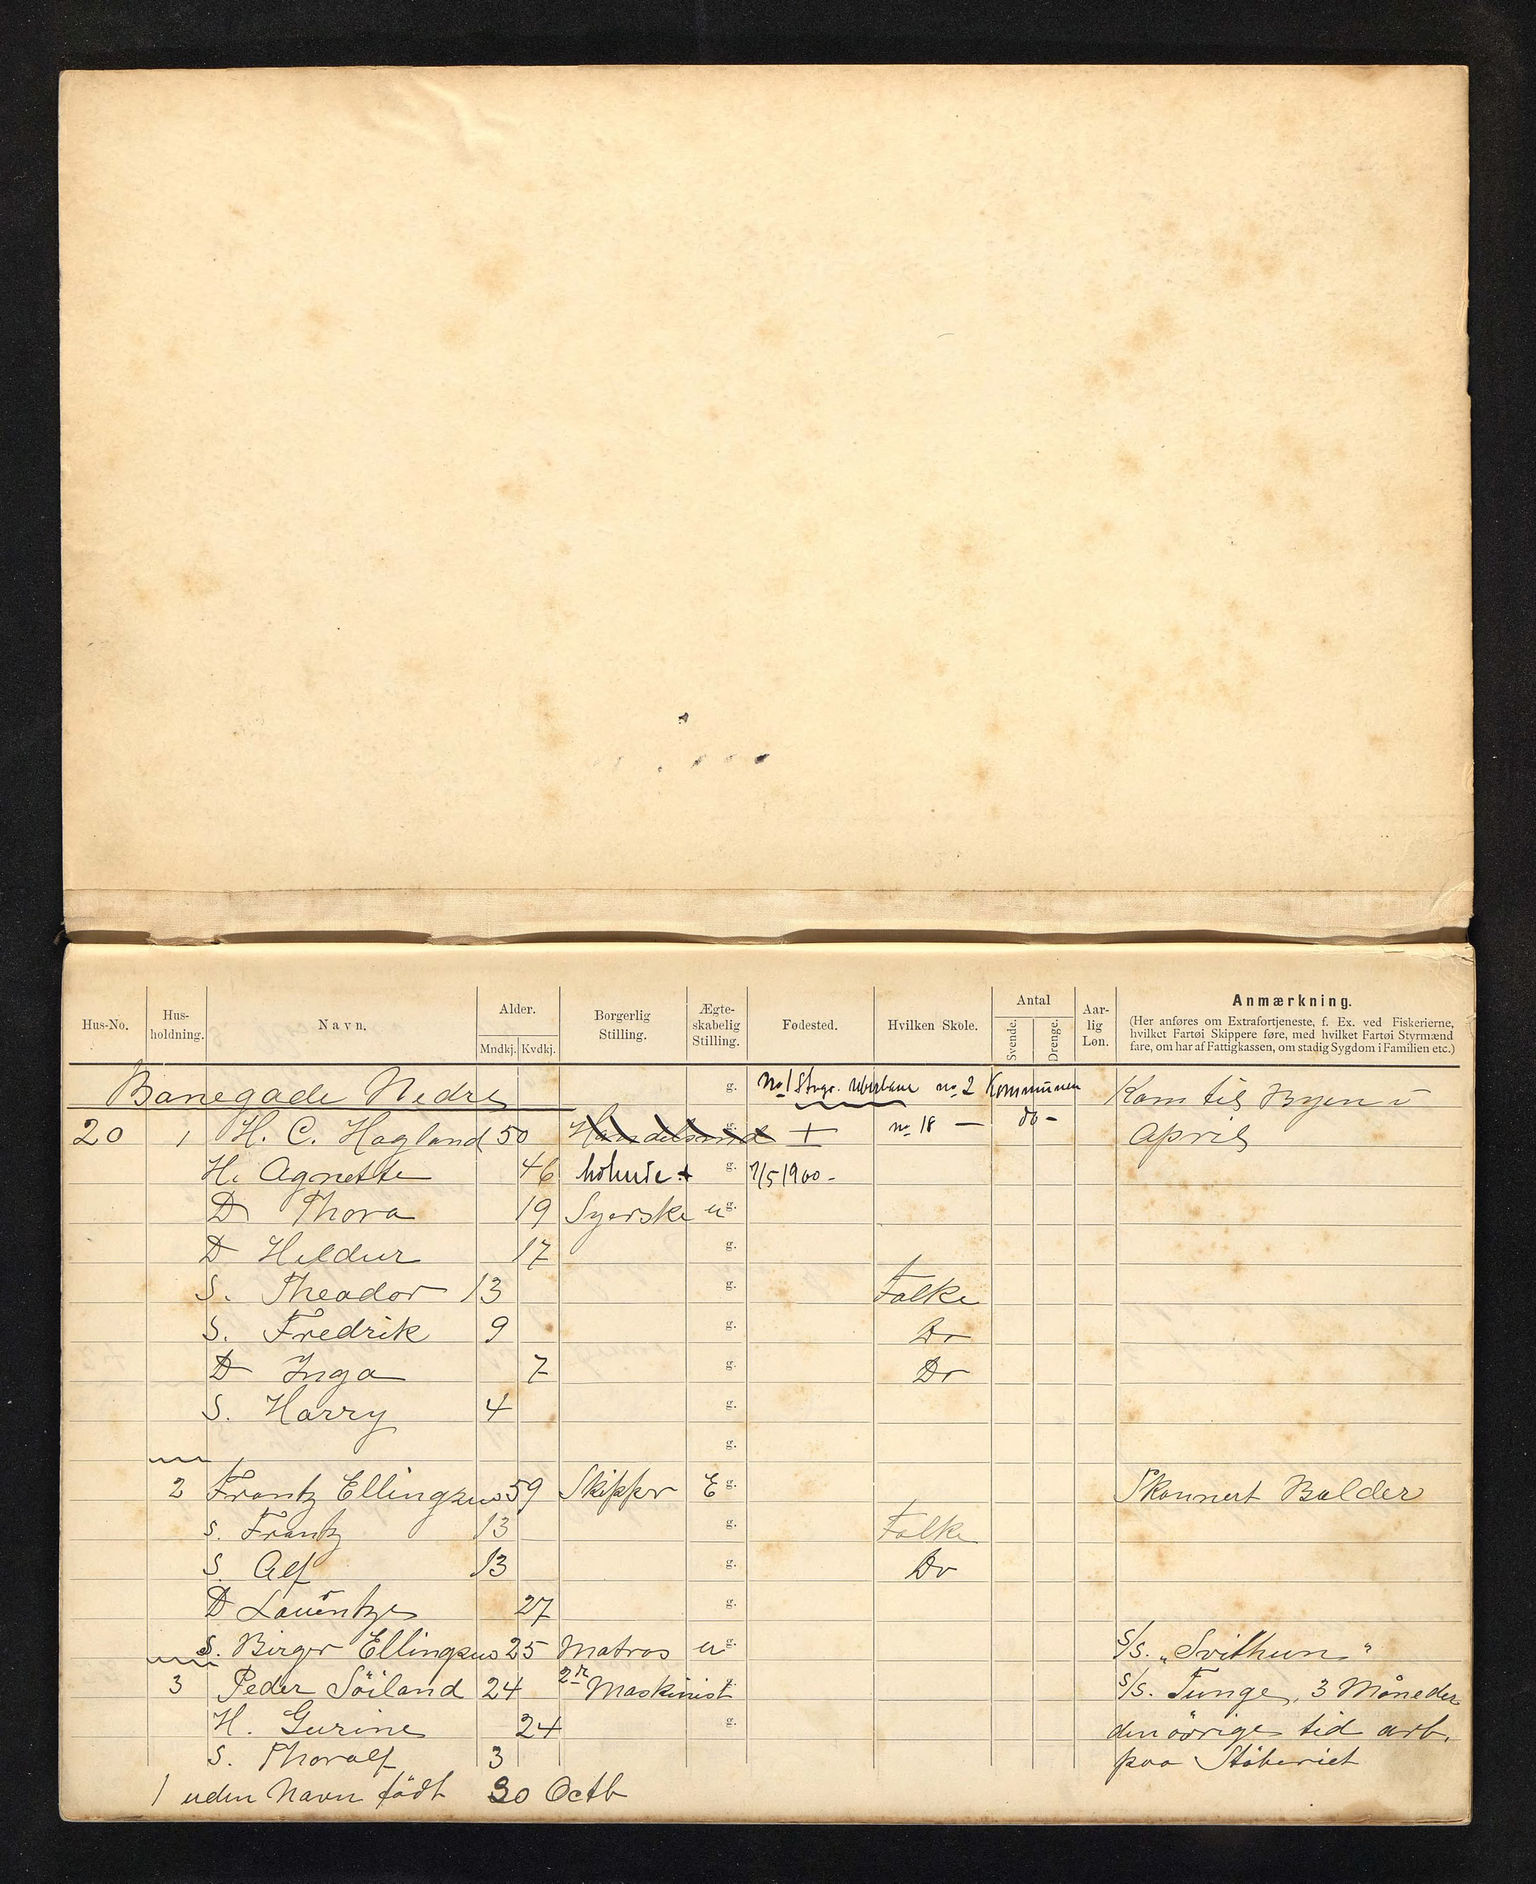 Hus-No. Hus-holdning. Navn. Alder. Mndkj. Kvdkj. Borgerlig Stilling. Ægte-skabelig Stilling. Fødested. Hvilken Skole. Antal Svende. Drenge. Aar-lig Løn. Anmærkning.
(Her anføres om Extrafortjeneste, f. Ex. ved Fiskerierne,
hvilket Fartøi Skippere føre, med hvilket Fartøi Styrmænd
fare, om har af Fattigkassen, om stadig Sygdom i Familien etc.)
Banegade Nedre g. No 1 Stvgr. no 2 Kommunen Kom til Byen i
20 1 H. C. Hagland 50 Handelsmd + no 18 — do - April
H. Agnette 46 g. 7/5 1900 -
D Thora 19 Syerske u g.
D Hildur 17 g.
S. Theodor 13 g. Folke
S. Fredrik 9 g. Do
D Inga 7 g. Do
S. Harry 4 g.
g.
2 Frantz Ellingsen 59 Skipper E g. Skonnert Balder
S. Frantz 13 g. Folke
S. Alf 13 g. Do
D Laurentze 27 g.
S. Birger Ellingsen 25 Matros u g. S/S. „Svithun"
3 Peder Söiland 24 2n Maskinist g. S/S. Tunge, 3 Måneder
H. Gurine 24 g. den övrige tid arb.
S. Thoralf 3 paa Stöberiet
1 uden Navn födt 30 Octb